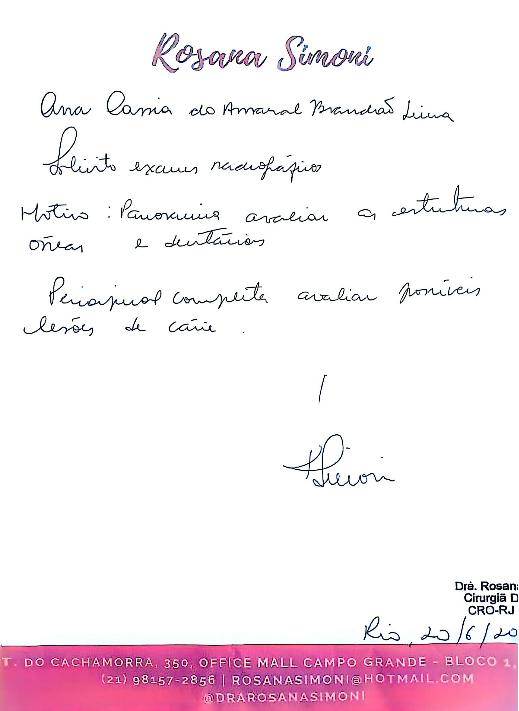 Rosana Simoni
Ana Cassia do Amaral Brandão Lima
Solicito exames radiográficos
Motivo : Panorâmica avaliar as estruturas
ósseas e dentárias
Periapical completa avaliar possíveis
lesões de cárie .
Simoni
Drª. Rosan
Cirurgiã D
CRO-RJ
Rio, 20/6/20
T. DO CACHAMORRA, 350, OFFICE MALL CAMPO GRANDE - BLOCO 1,
(21) 98157-2856 | ROSANASIMONI@HOTMAIL.COM
@DRAROSANASIMONI